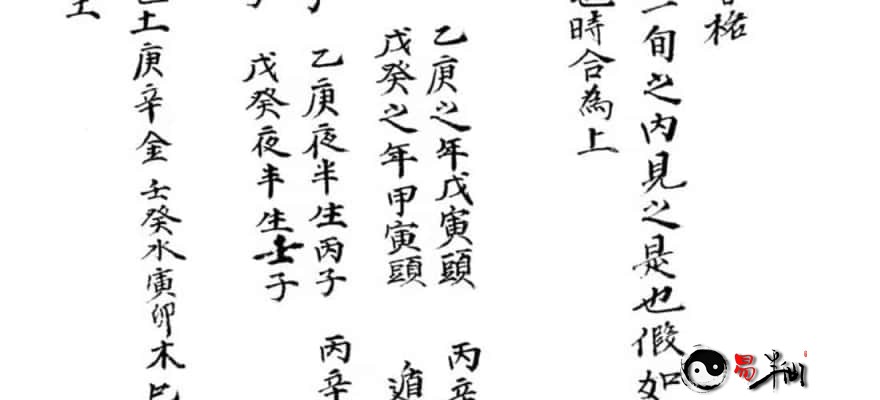 格
一旬之内見之是也假如
時合為上
乙庚之年戊寅頭 丙辛
戊癸之年甲寅頭 遁
乙庚夜半生丙子 丙辛
戊癸夜半生壬子
土庚辛金壬癸水寅卯木巳
土
易半仙